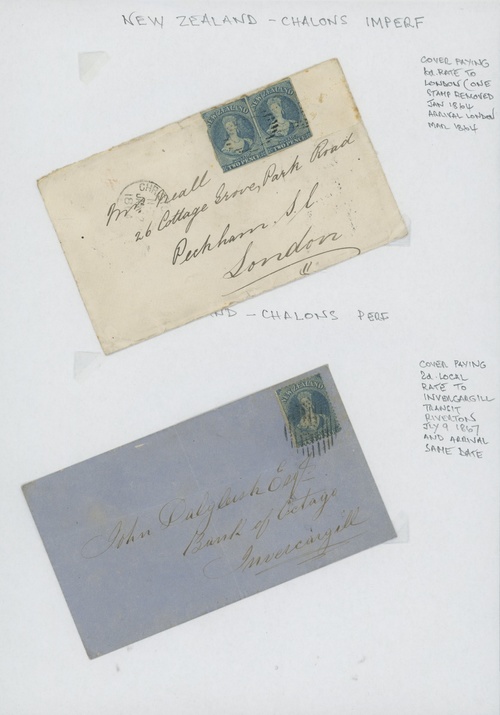 NEW ZEALAND - CHALONS IMPERF
COVER PAYING
6d RATE TO
LONDON (ONE
STAMP REMOVED
JAN 1864
ARRIVAL LONDON
MAR 1864
NEW ZEALAND
NEW ZEALAND
TWO PENCE
TWO PENCE
Mrs Neall
26 Cottage Grove, Park Road
Peckham, S.E
London
ND - CHALONS PERF
COVER PAYING
2d. LOCAL
RATE TO
INVERCARGILL
TRANSIT
RIVERTON
JLY 9 1867
AND ARRIVAL
SAME DATE
NEW ZEALAND
John Dalgleish Esqr.
Bank of Otago
Invercargill